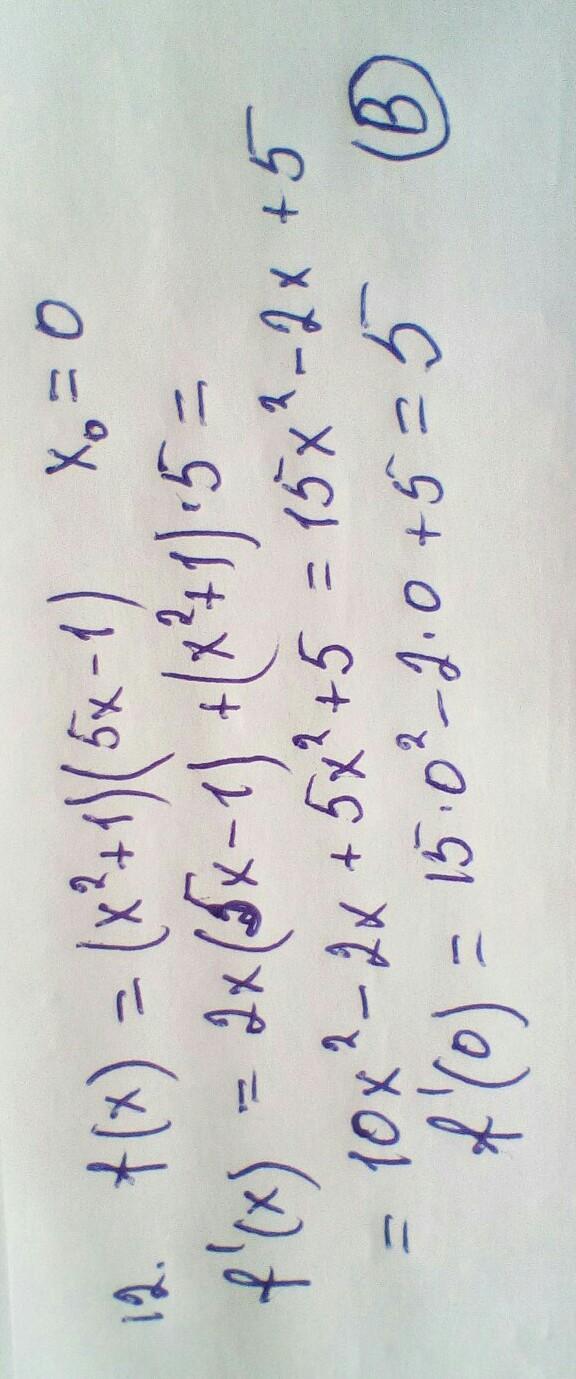 12. f(x) = (x²+1)(5x-1) x₀ = 0
f'(x) = 2x(5x-1) + (x²+1)·5 =
= 10x² - 2x + 5x² + 5 = 15x² - 2x + 5
f'(0) = 15·0² - 2·0 + 5 = 5 B